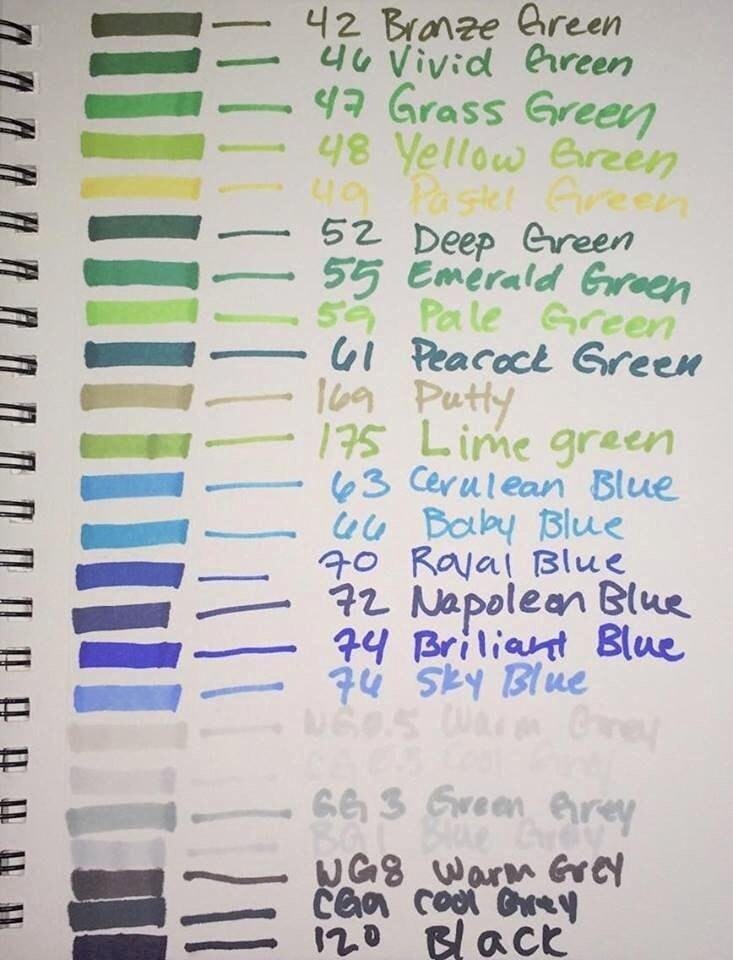 42 Bronze Green
46 Vivid Green
47 Grass Green
48 Yellow Green
49 Pastel Green
52 Deep Green
55 Emerald Green
59 Pale Green
61 Peacock Green
169 Putty
175 Lime green
63 Cerulean Blue
66 Baby Blue
70 Royal Blue
72 Napoleon Blue
74 Briliant Blue
76 Sky Blue
WG0.5 Warm Grey
CG0.5 Cool Grey
GG 3 Green Grey
BG1 Blue Grey
WG8 Warm Grey
CG9 Cool Grey
120 Black